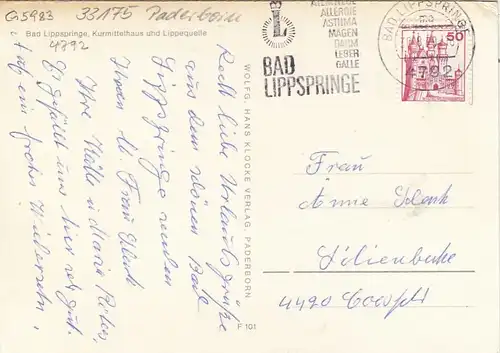 G5983 33175 Paderborn
Bad Lippspringe, Kurmittelhaus und Lippequelle
4792
ATEMWEGE
ALLERGIE
ASTHMA
MAGEN
DARM
LEBER
GALLE
L
BAD
LIPPSPRINGE
BAD LIPPSPRINGE
4792
50
Recht liebe Urlaubsgrüße
aus dem schönen Bad
Lippspringe senden
Ihnen u. Frau
Ihre Käthe u. Maria
Es gefällt uns hier sehr gut.
Auf ein frohes Wiedersehn.
WOLFG. HANS KLOCKE VERLAG, PADERBORN
F 101
Frau
Anne
Lilienbeche
4420 Coesfeld